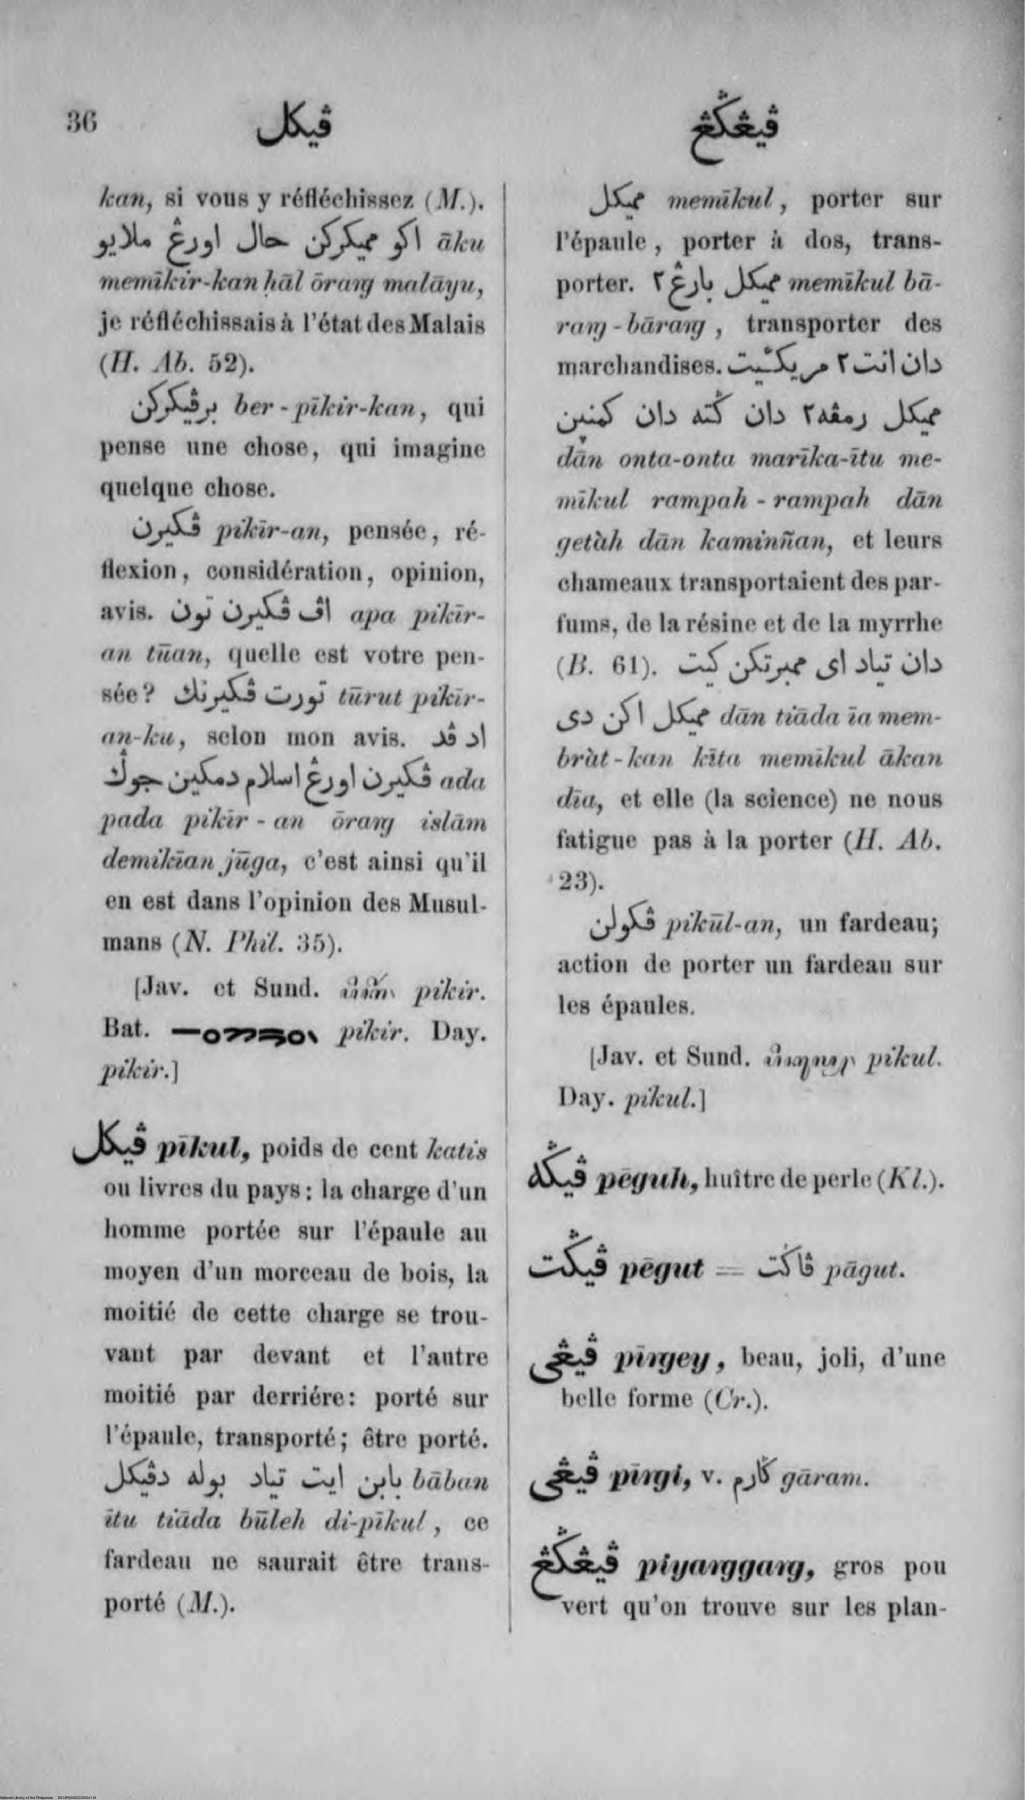 36
ڤيكل
ڤيڠݢڠ
kan, si vous y réfléchissez (M.).
اكو مميكركن حال اورڠ ملايو āku
memīkir-kan ḥāl ōraŋ malāyu,
je réfléchissais à l'état des Malais
(H. Ab. 52).
برڤيكركن ber-pīkir-kan, qui
pense une chose, qui imagine
quelque chose.
ڤكيرن pikīr-an, pensée, ré-
flexion, considération, opinion,
avis. اڤ ڤكيرن تون apa pikīr-
an tūan, quelle est votre pen-
sée? تورت ڤكيرنك tūrut pikīr-
an-ku, selon mon avis. اد ڤد
ڤكيرن اورڠ اسلام دمكين جوݢ ada
pada pikīr-an ōraŋ islām
demikīan jūga, c'est ainsi qu'il
en est dans l'opinion des Musul-
mans (N. Phil. 35).
[Jav. et Sund. pikir.
Bat. pikir. Day.
pikir.]
ڤيكل pīkul, poids de cent katis
ou livres du pays; la charge d'un
homme portée sur l'épaule au
moyen d'un morceau de bois, la
moitié de cette charge se trou-
vant par devant et l'autre
moitié par derriére: porté sur
l'épaule, transporté; être porté.
بابن ايت تياد بوله دڤيكل bāban
ītu tiāda būleh di-pīkul, ce
fardeau ne saurait être trans-
porté (M.).
مميكل memīkul, porter sur
l'épaule, porter à dos, trans-
porter. مميكل بارڠ٢ memīkul bā-
raŋ-bāraŋ, transporter des
marchandises. دان انت٢ مريكئيت
مميكل رمڤه٢ دان ݢته دان كمنين
dān onta-onta marīka-ītu me-
mīkul rampah-rampah dān
getàh dān kaminñan, et leurs
chameaux transportaient des par-
fums, de la résine et de la myrrhe
(B. 61). دان تياد اي ممبرتكن كيت
مميكل اكن دى dān tiāda īa mem-
bràt-kan kīta memīkul ākan
dīa, et elle (la science) ne nous
fatigue pas à la porter (H. Ab.
23).
ڤكولن pikūl-an, un fardeau;
action de porter un fardeau sur
les épaules.
[Jav. et Sund. pikul.
Day. pikul.]
ڤيݢه pēguh, huître de perle (Kl.).
ڤيݢت pēgut = ڤاݢت pāgut.
ڤيڠى pīŋey, beau, joli, d'une
belle forme (Cr.).
ڤيڠى pīŋgi, v. ݢارم gāram.
ڤيڠݢڠ piyaŋggaŋ, gros pou
vert qu'on trouve sur les plan-